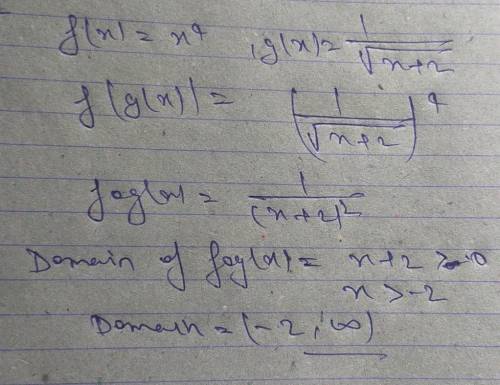 f(x) = x⁴ , g(x) = 1/√(x+2)
f(g(x)) = (1/√(x+2))⁴
fog(x) = 1/(x+2)²
Domain of fog(x) = x+2 > 0
x > -2
Domain = (-2, ∞)